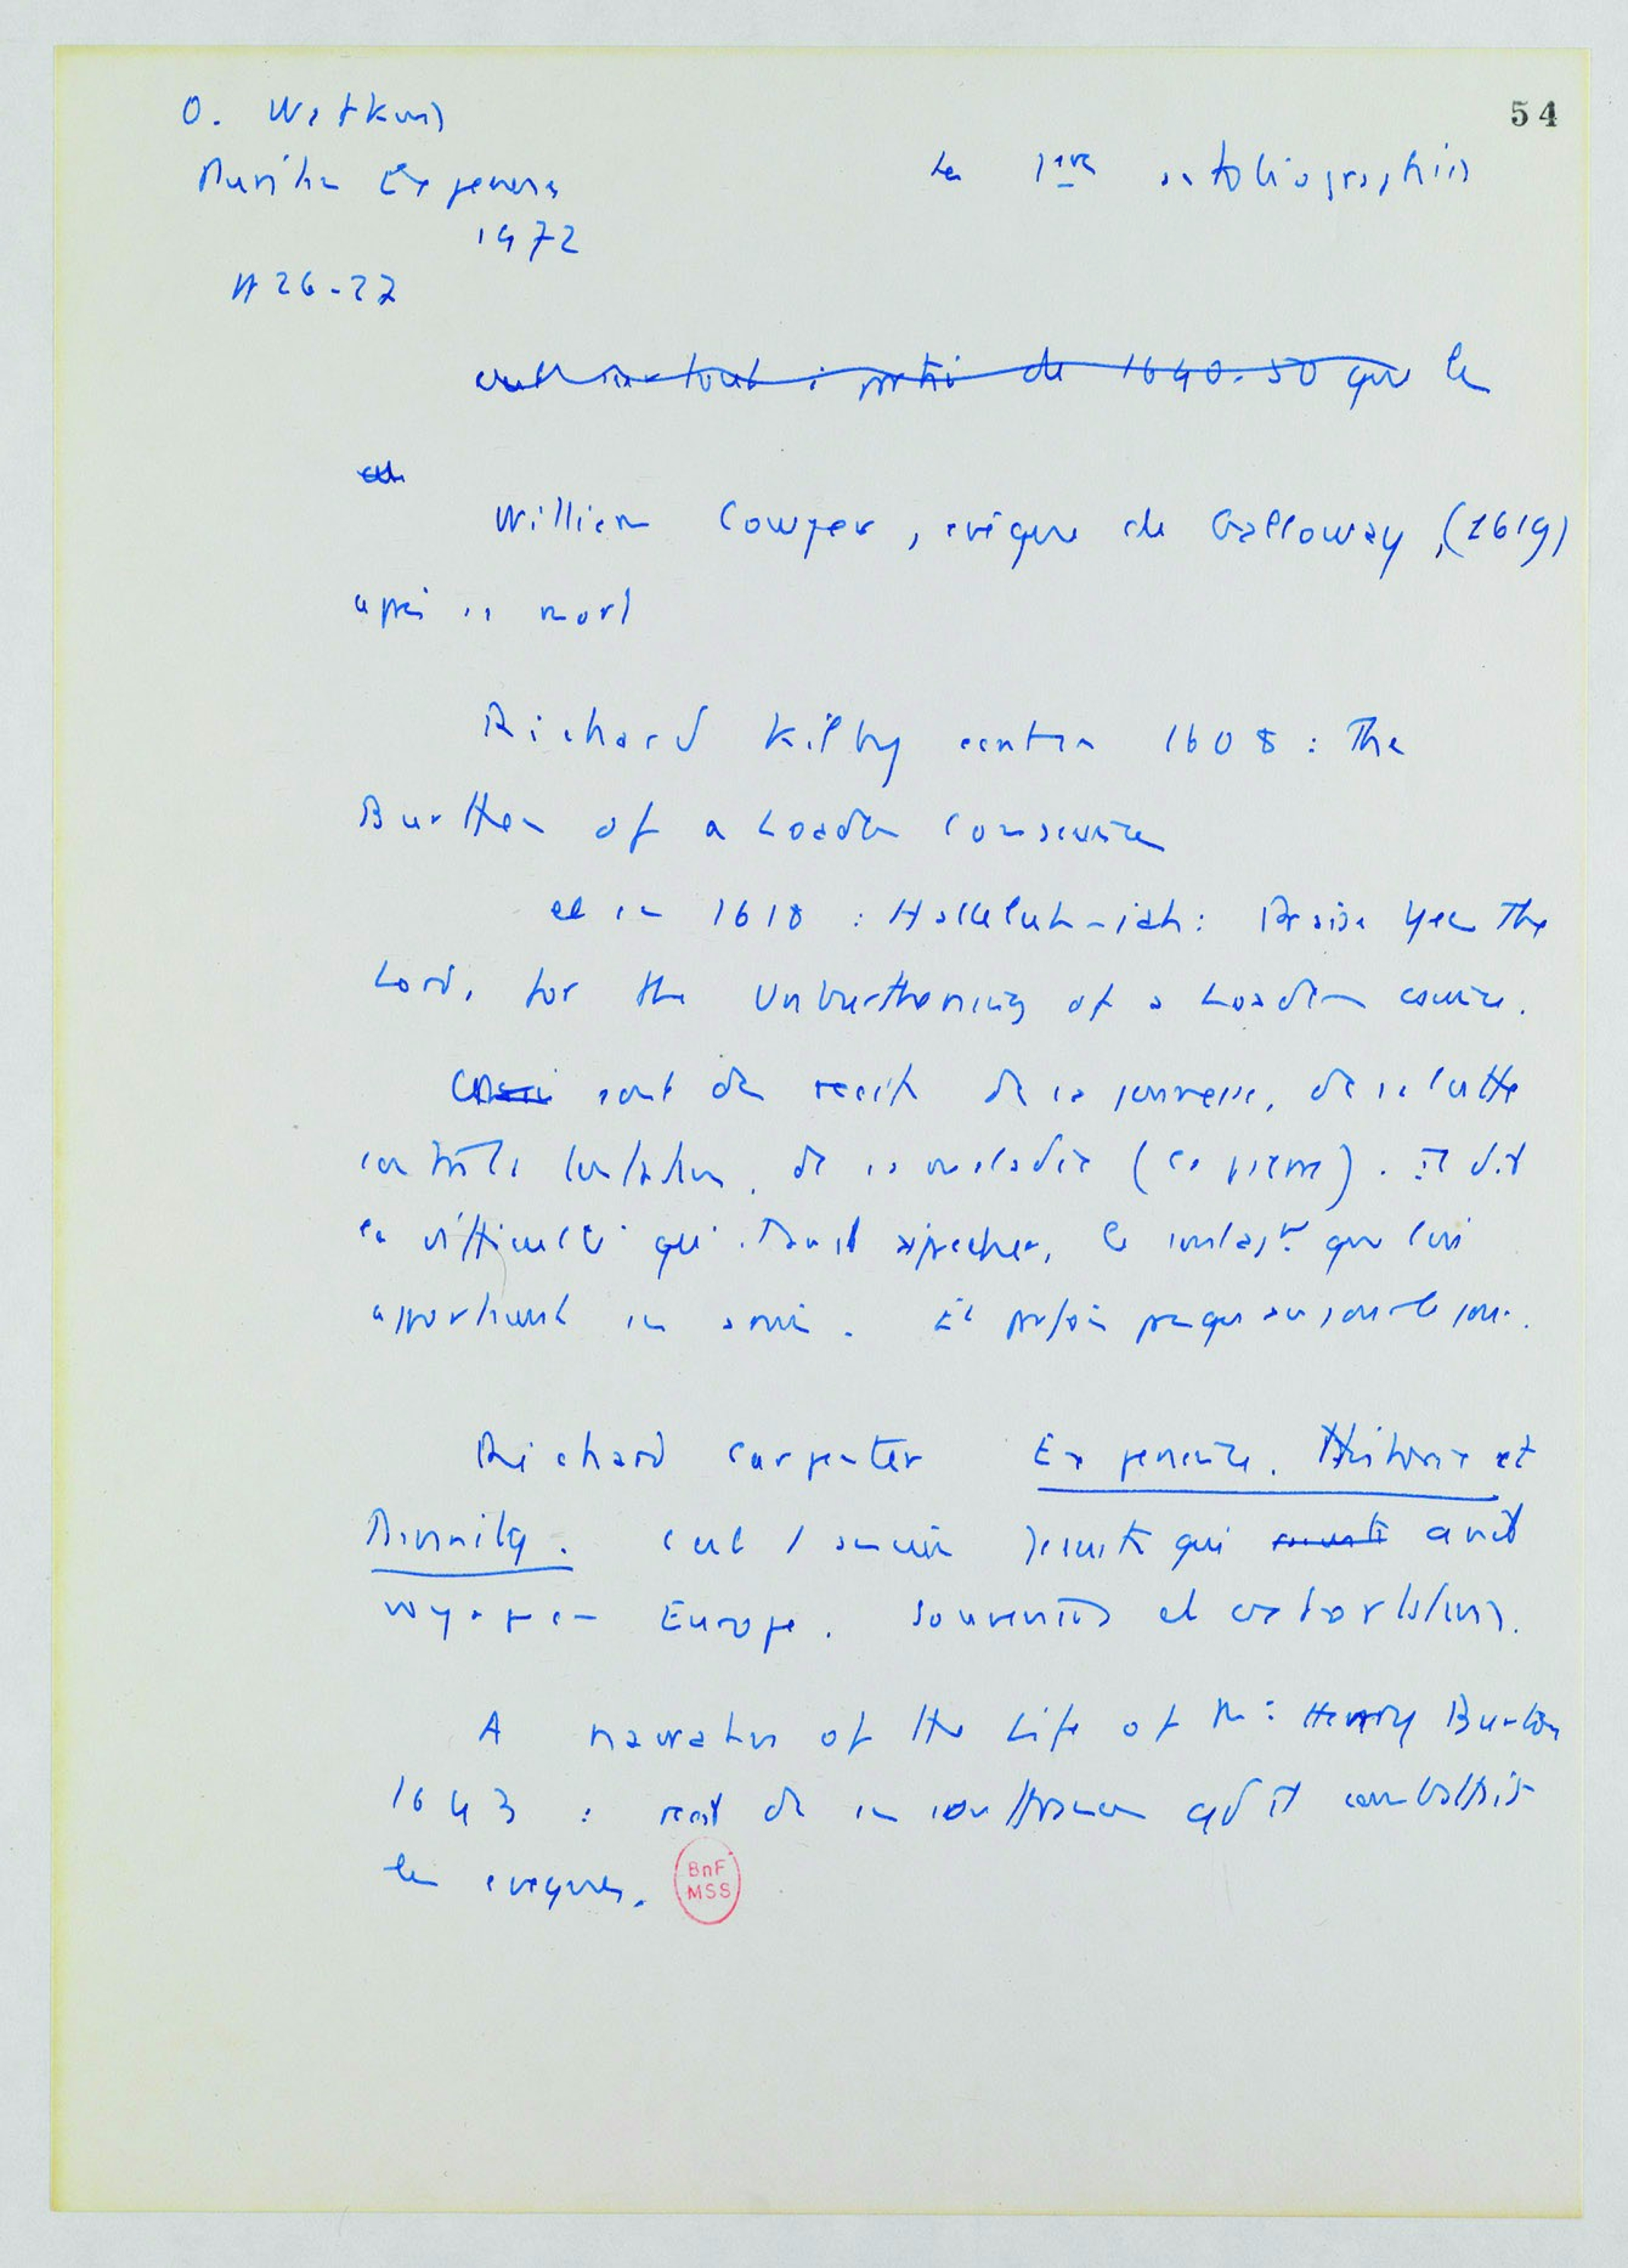 54
O. Watkins
Puritan Experience
1972
# 26-27
Les 1ères autobiographies
c'est surtout à partir de 1640-50 que les
William Cowper, évêque de Galloway, (1619)
après sa mort
Richard Kilby écrit en 1608 : The
Burthen of a Loaden conscience
et en 1618 : Halleluh-iah : Praise Yee The
Lord, for the Unburthening of a Loaden conscience.
sont des récits de sa jeunesse, de sa lutte
contre les tentations, de sa maladie (la pierre). Il dit
la difficulté qu'il avait à prêcher, le soulagt que lui
apportaient ses amis. Et parfois presque au jour le jour.
Richard Carpenter Experience, Historie et
Divinity. C'est 1 ancien jésuite qui avait
voyagé en Europe. Souvenirs et exhortations.
A narration of the Life of Mr Henry Burton
1643 : récit de ses souffrances qd il combattait
les évêques.
BnF
MSS